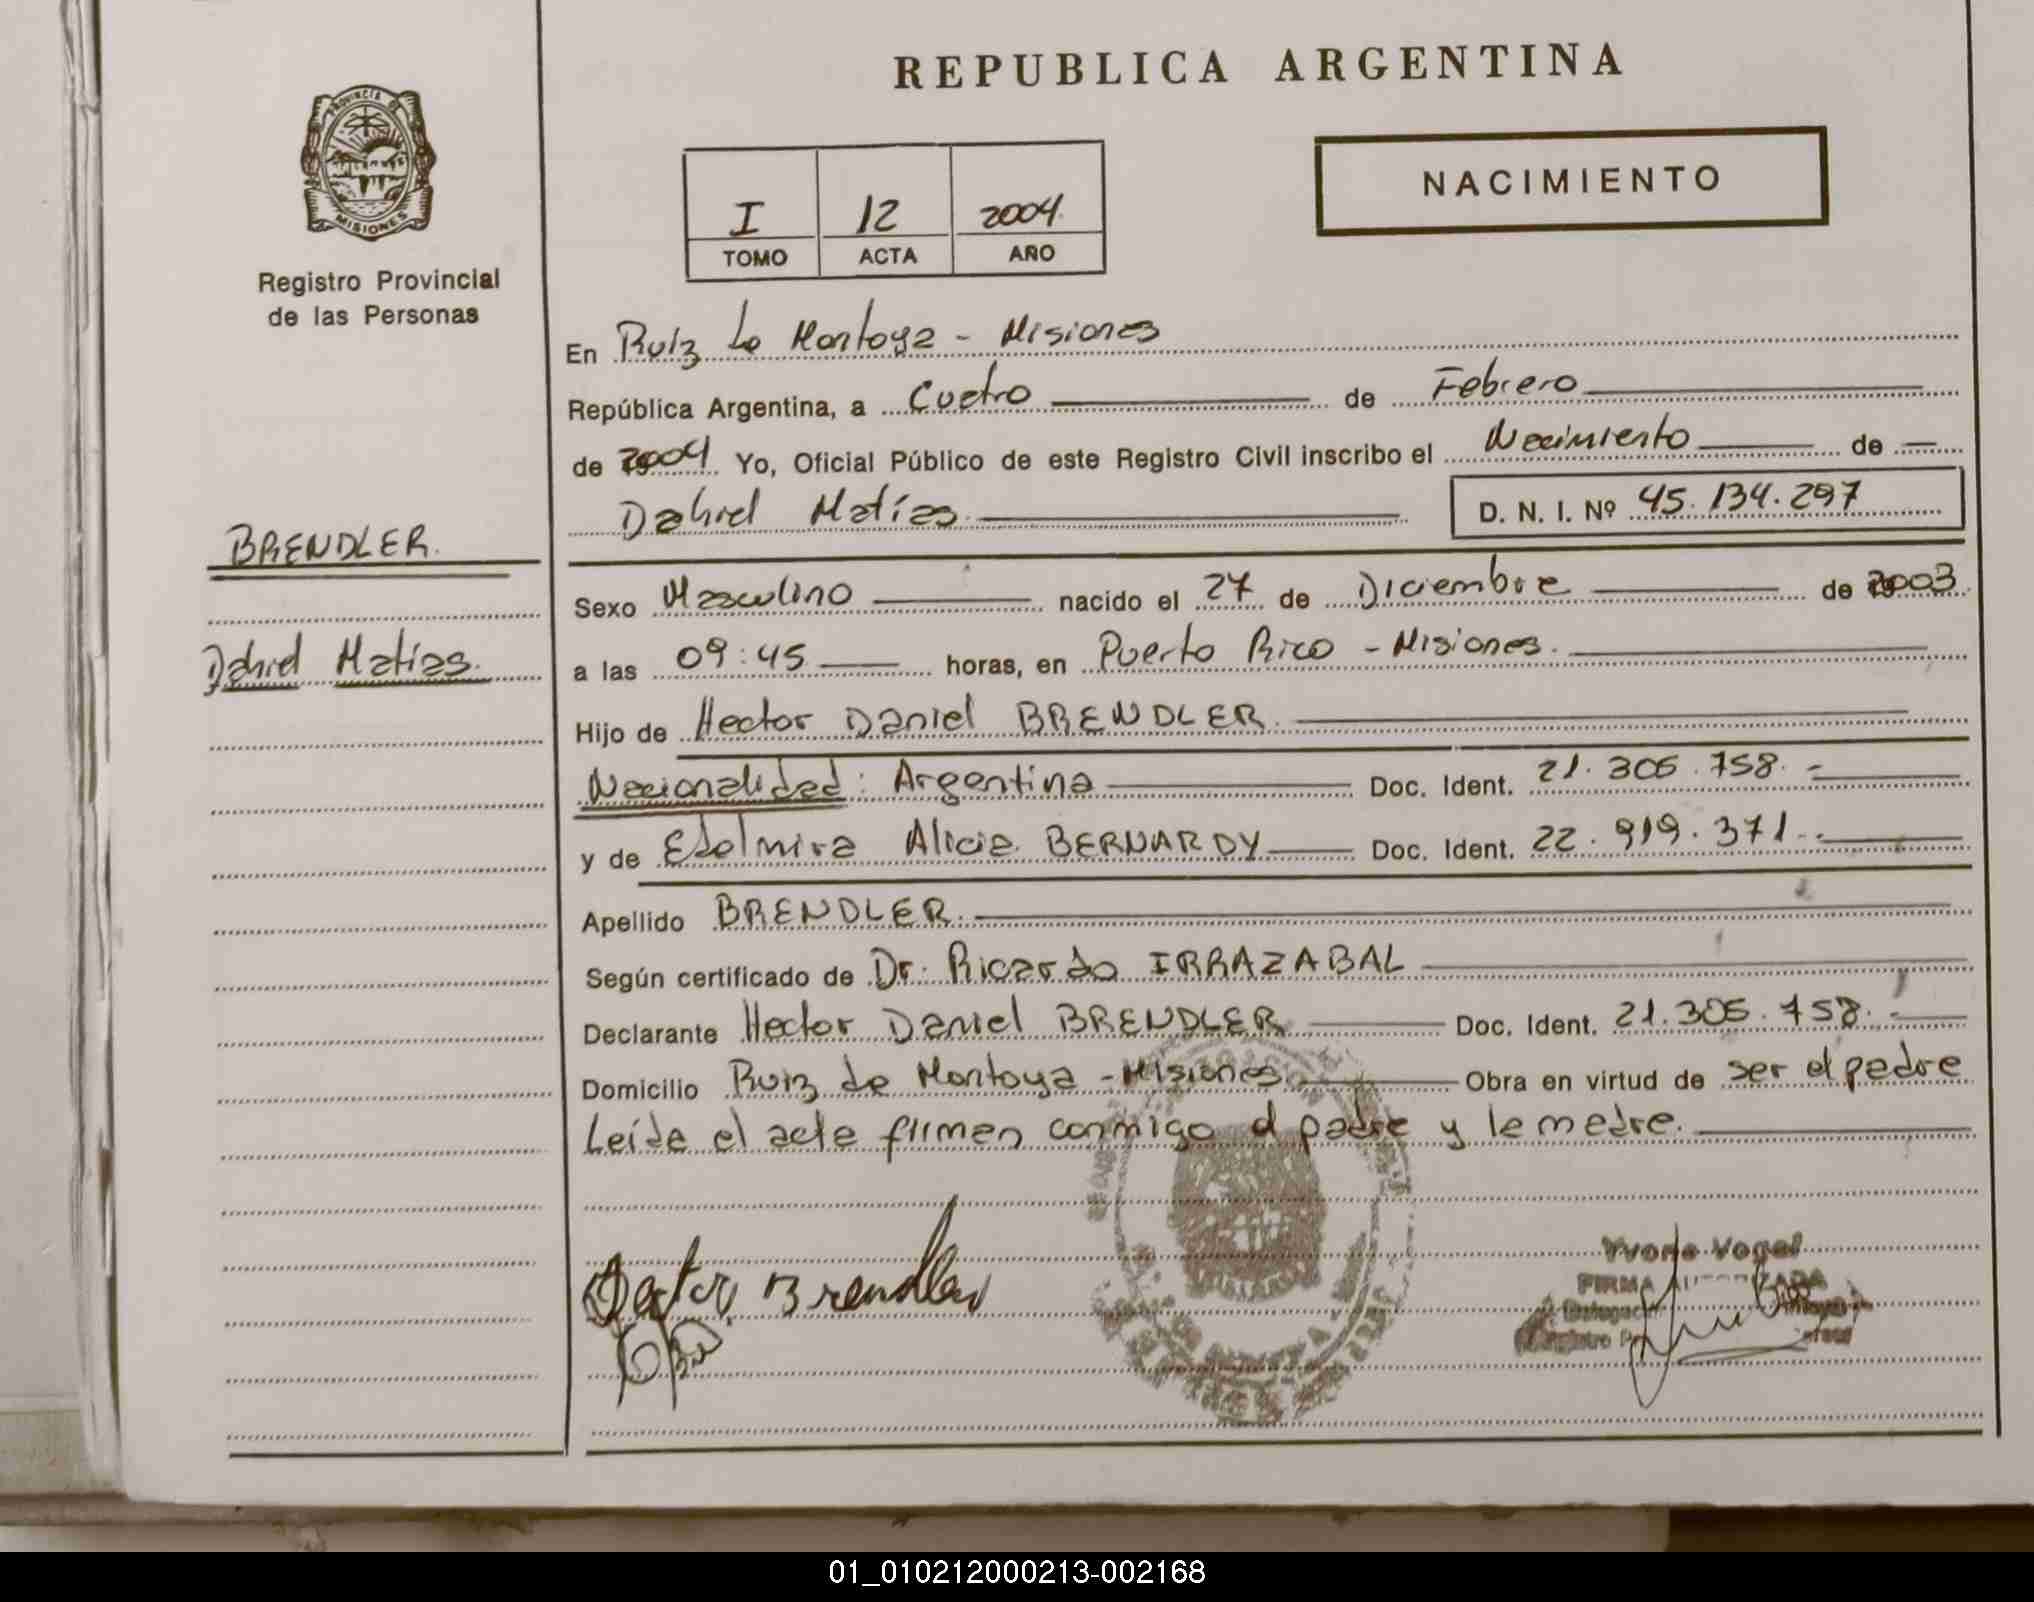 REPUBLICA ARGENTINA
PROVINCIA DE
MISIONES
Registro Provincial
de las Personas
I 12 2004
TOMO ACTA AÑO
NACIMIENTO
En Ruiz de Montoya - Misiones
República Argentina, a Cuatro de Febrero
de 2004 Yo, Oficial Público de este Registro Civil inscribo el Nacimiento de
Matías D. N. I. Nº 45.134.297
BRENDLER.
Matías.
Sexo Masculino nacido el 27 de Diciembre de 2003
a las 09:45 horas, en Puerto Rico - Misiones.
Hijo de Hector Daniel BRENDLER.
Nacionalidad: Argentina Doc. Ident. 21.305.758.-
y de Edelmira Alicia BERNARDY Doc. Ident. 22.919.371.-
Apellido BRENDLER.
Según certificado de Dr. Ricardo IRRAZABAL
Declarante Hector Daniel BRENDLER Doc. Ident. 21.305.758.-
Domicilio Ruiz de Montoya - Misiones Obra en virtud de ser el padre
Leída el acta firman conmigo el padre y la madre.
Hector Brendler
Yvone Vogel
FIRMA AUTORIZADA
01_010212000213-002168